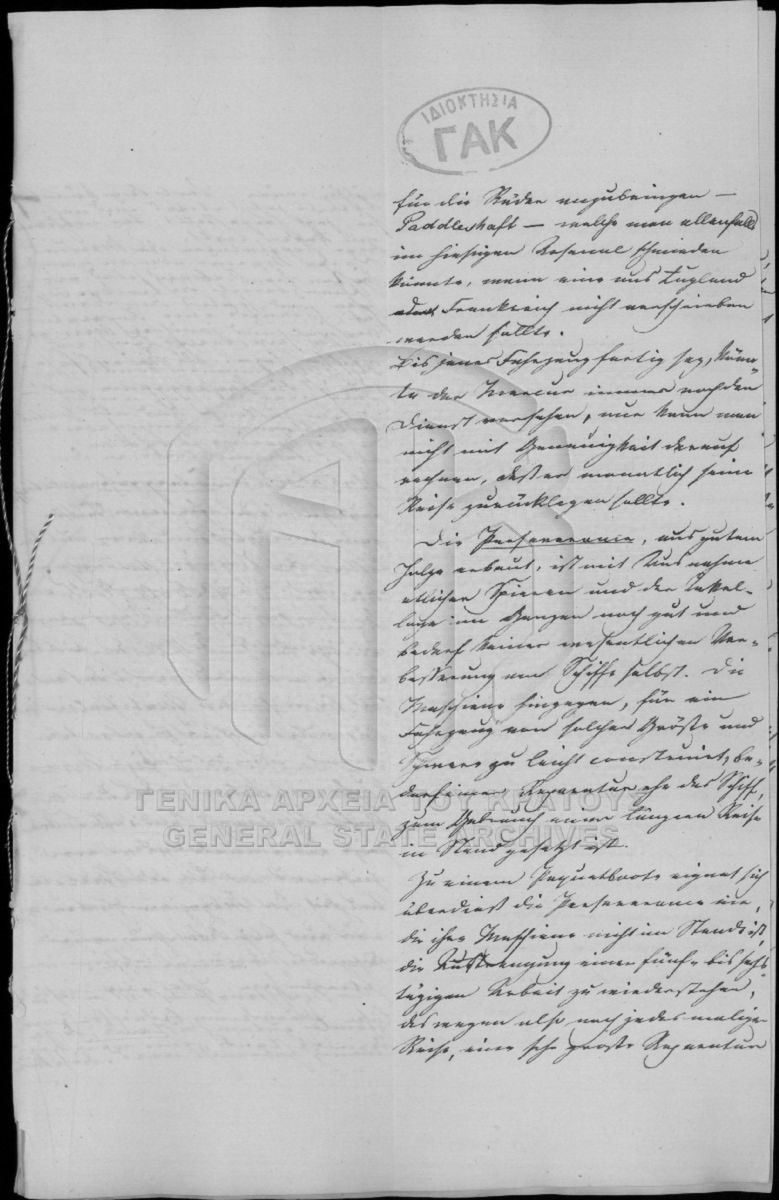 ΙΔΙΟΚΤΗΣΙΑ
ΓΑΚ
für die Räder anzubringen —
Paddleshaft — welche man allenfalls
im hiesigen Arsenal schmieden
könnte, wenn eine aus England
oder Frankreich nicht verschrieben
werden sollte.
Bis jenes Fahrzeug fertig sey, könn-
te der Mercur immer noch den
Dienst versehen, nur kann man
nicht mit Genauigkeit darauf
rechnen, daß er monatlich seine
Reise zurücklegen sollte.
Die Perseverance, aus gutem
Holze erbaut, ist mit Ausnahme
etlicher Spieren und der Takel-
lage im Ganzen noch gut und
bedarf keiner wesentlichen Ver-
besserung am Schiffe selbst. Die
Maschiene hingegen, für ein
Fahrzeug von solcher Größe und
Schwere zu leicht construirt, be-
darf einer Reparatur ehe das Schiff,
zum Gebrauch einer längern Reise
in Stand gesetzt ist.
Zu einem Paquetboote eignet sich
überdieß die Perseverance nie,
da ihre Maschiene nicht im Stande ist,
die Anstrengung einer fünf- bis sechs-
tägigen Arbeit zu wiederstehen,
deswegen also nach jedesmaliger
Reise, eine sehr große Reparatur
ΓΕΝΙΚΑ ΑΡΧΕΙΑ ΤΟΥ ΚΡΑΤΟΥΣ
GENERAL STATE ARCHIVES